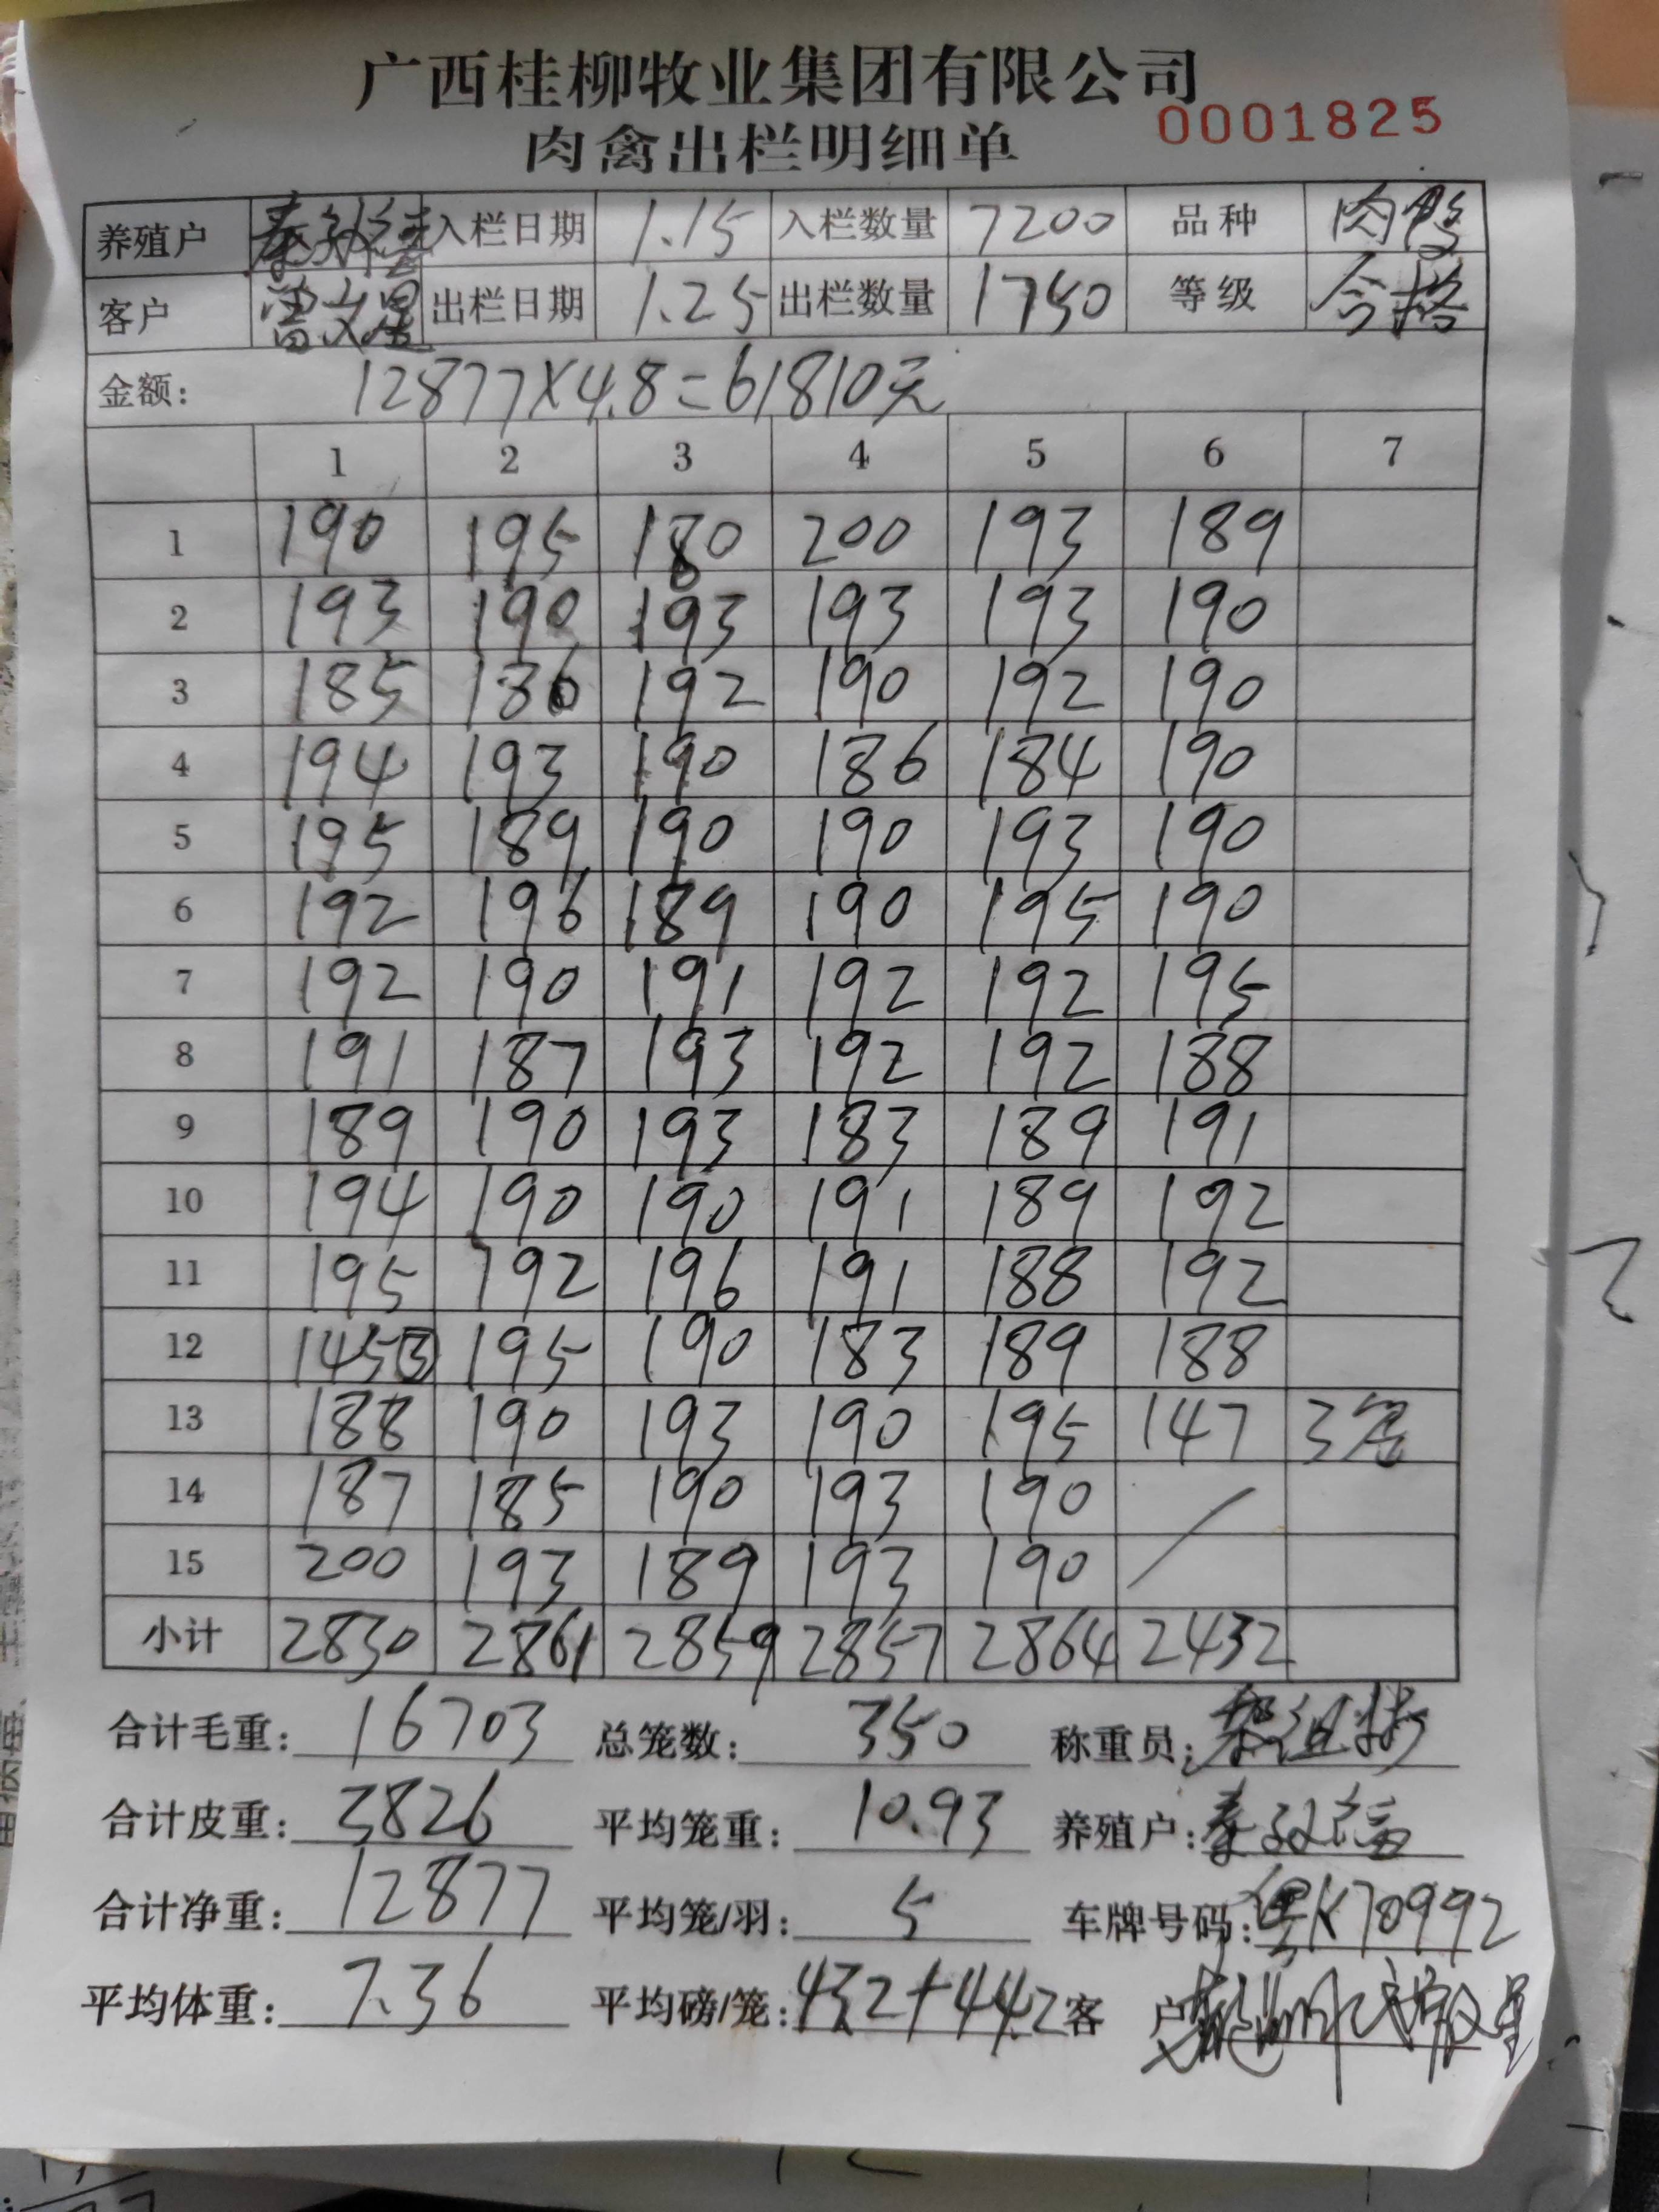 广西桂柳牧业集团有限公司
肉禽出栏明细单 0001825
养殖户 入栏日期 1.15 入栏数量 7200 品种 肉鸭
客户 出栏日期 1.25 出栏数量 1750 等级 合格
金额: 12877×4.8=61810元
1 2 3 4 5 6 7
1 190 195 180 200 193 189
2 193 190 193 193 193 190
3 185 186 192 190 192 190
4 194 193 190 186 184 190
5 195 189 190 190 193 190
6 192 196 189 190 195 190
7 192 190 191 192 192 195
8 191 187 193 192 192 188
9 189 190 193 183 189 191
10 194 190 190 191 189 192
11 195 192 196 191 188 192
12 145③ 195 190 183 189 188
13 188 190 193 190 195 147 3笼
14 187 185 190 193 190
15 200 193 189 193 190
小计 2830 2861 2859 2857 2864 2432
合计毛重: 16703 总笼数: 350 称重员:
合计皮重: 3826 平均笼重: 10.93 养殖户:
合计净重: 12877 平均笼/羽: 5 车牌号码: 粤K70992
平均体重: 7.36 平均磅/笼: 43.2+44.2 客户